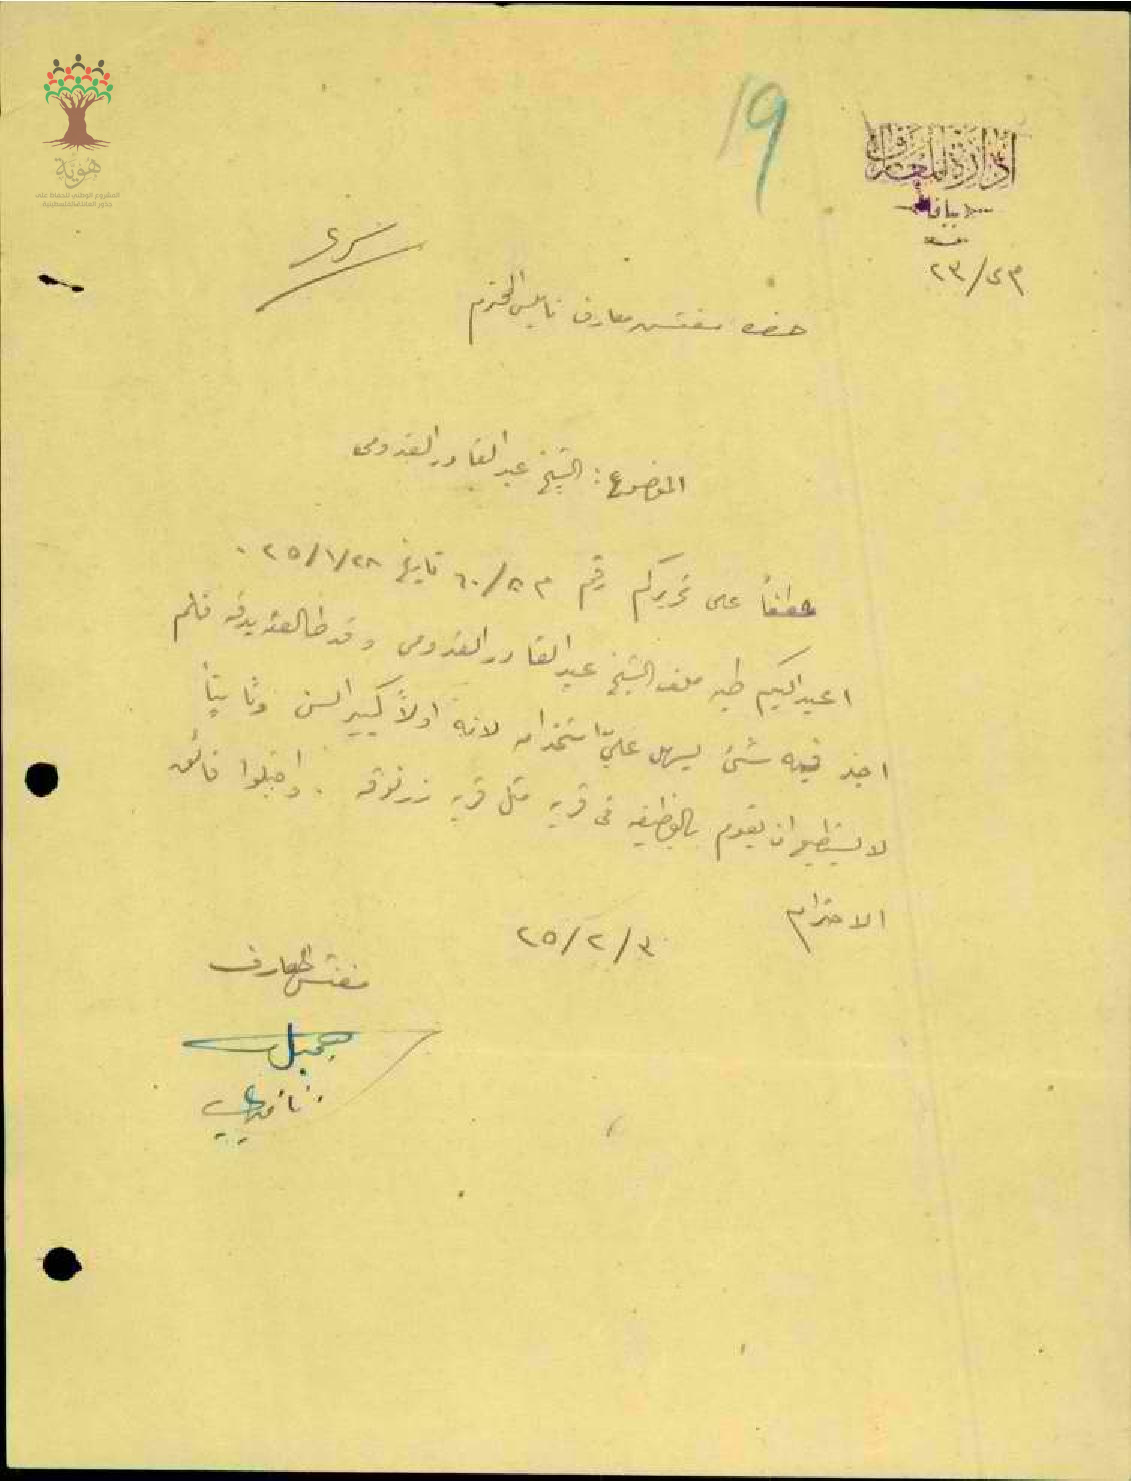 هوية
المشروع الوطني للحفاظ على
جذور العائلة الفلسطينية
19
إدارة المعارف
بيافا
سري
حضرة مفتش معارف نابلس المحترم
الموضوع: الشيخ عبد القادر القدومي
عطفاً على تحريركم رقم تاريخ ٢٥/١/٢٨ .
اعيد اليكم طيه ملف الشيخ عبد القادر القدومي وقد طالعته بدقه فلم
اجد فيه شئ يسهل عليّ استخدامه لانه اولاً كبير السن وثانياً
لا يستطيع ان يقوم بالوظيفه في قريه مثل قريه زرنوقه . واقبلوا فائق
الاحترام
٢٥/٢/٣
مفتش المعارف
جميل